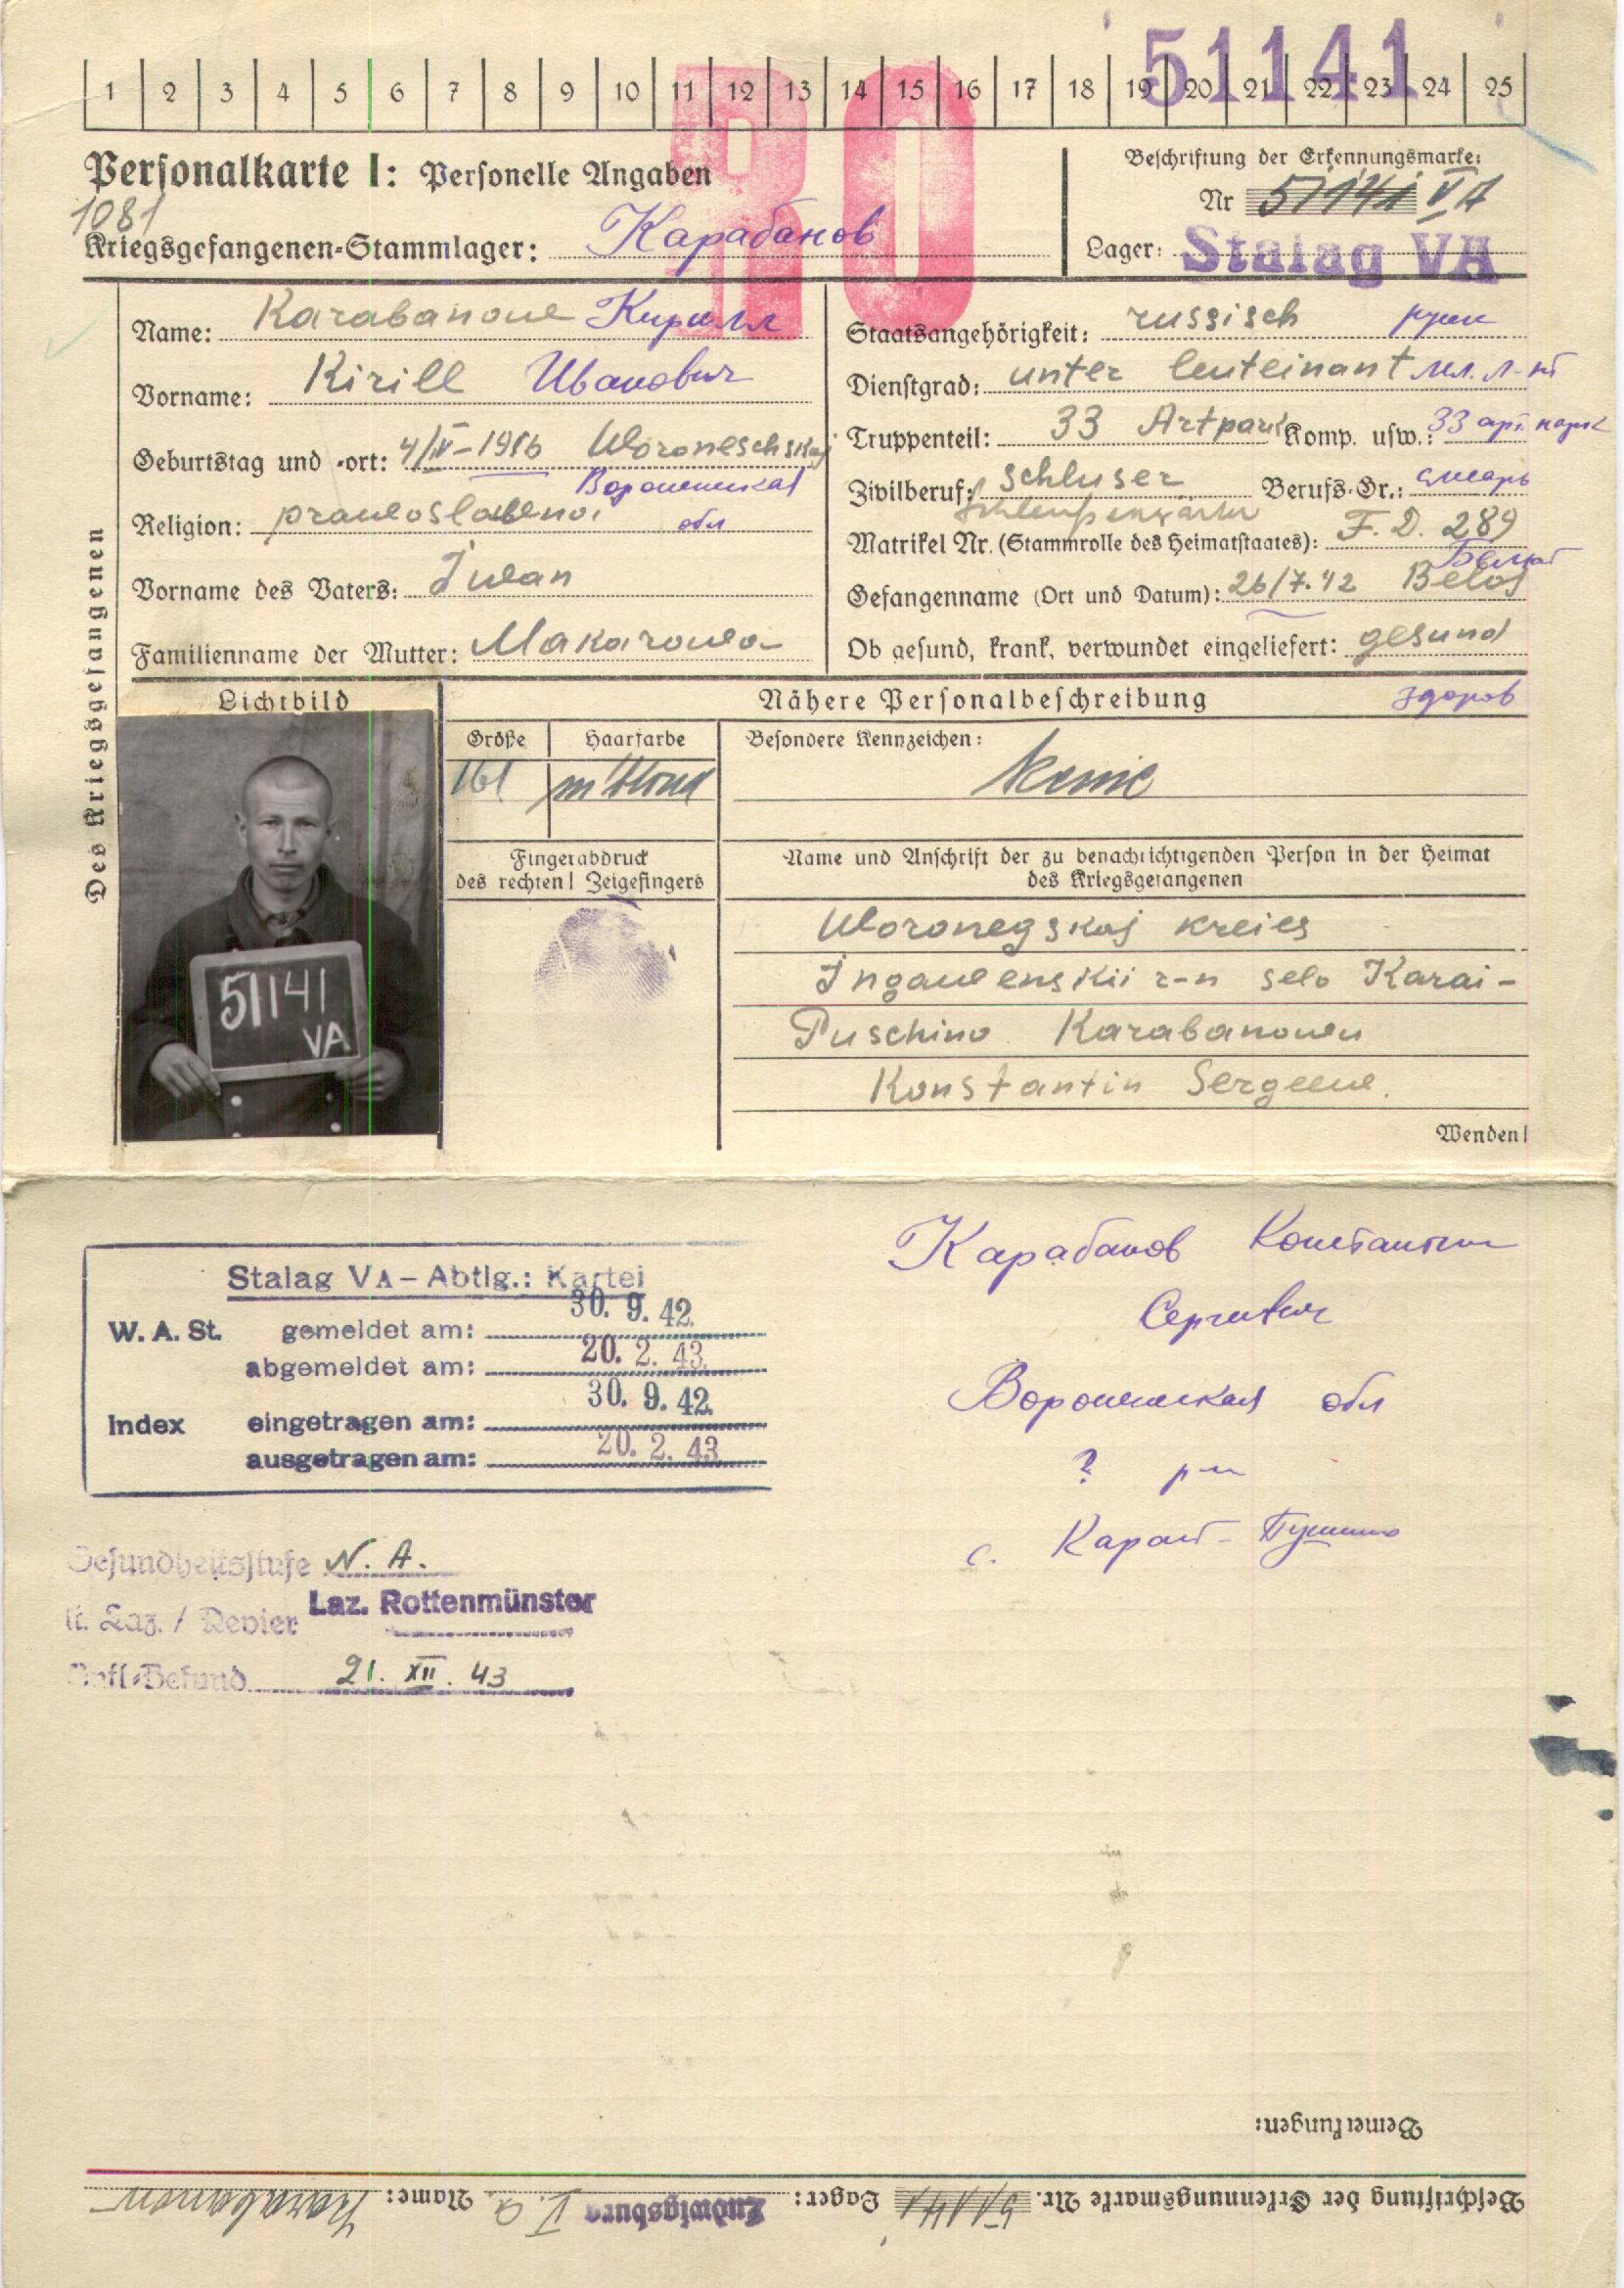 51141
1 2 3 4 5 6 7 8 9 10 11 12 13 14 15 16 17 18 19 20 21 22 23 24 25
RO
Personalkarte I: Personelle Angaben
Beschriftung der Erkennungsmarke:
Nr 51141 VA
1081
Kriegsgefangenen-Stammlager: Карабанов
Lager: Stalag VA
Des Kriegsgefangenen
Name: Karabanoue Кирилл
Vorname: Kirill Иванович
Geburtstag und -ort: 4/IV-1916 Woroneschskaj
Воронежская
Religion: praweoslawenoi обл
Vorname des Vaters: Iwan
Familienname der Mutter: Makarowa
Staatsangehörigkeit: russisch русск
Dienstgrad: unter leuteinant мл. л-нт
Truppenteil: 33 Artpark Komp. usw.: 33 арт. парк
Zivilberuf: Schluser Berufs-Gr.: слесарь
Schleußenwärter
Matrikel Nr. (Stammrolle des Heimatstaates): F. D. 289
Gefangenname (Ort und Datum): 26/7.42 Beloj
Ob gesund, krank, verwundet eingeliefert: gesund
здоров
Lichtbild
51141
VA
Nähere Personalbeschreibung
Größe Haarfarbe
161 m'blond
Besondere Kennzeichen:
keine
Fingerabdruck
des rechten! Zeigefingers
Name und Anschrift der zu benachrichtigenden Person in der Heimat
des Kriegsgefangenen
Woronegskaj kreies
Ingawenskii r-n selo Karai-
Puschino Karabanowu
Konstantin Sergeewe.
Wenden!
Stalag VA – Abtlg.: Kartei
W. A. St. gemeldet am: 30. 9. 42.
abgemeldet am: 20. 2. 43.
Index eingetragen am: 30. 9. 42.
ausgetragen am: 20. 2. 43
Карабанов Константин
Сергеевич
Воронежская обл
? р-н
с. Карай-Пушино
Gesundheitsstufe N. A.
Laz. / Revier Laz. Rottenmünster
Befund 21. XII. 43
Bemerkungen:
Beschriftung der Erkennungsmarke Nr. 51141 Lager: Ludwigsburg V. a Name: Karabanow